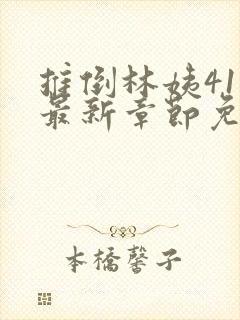 推倒林姨41
最新章节免
本橋馨子